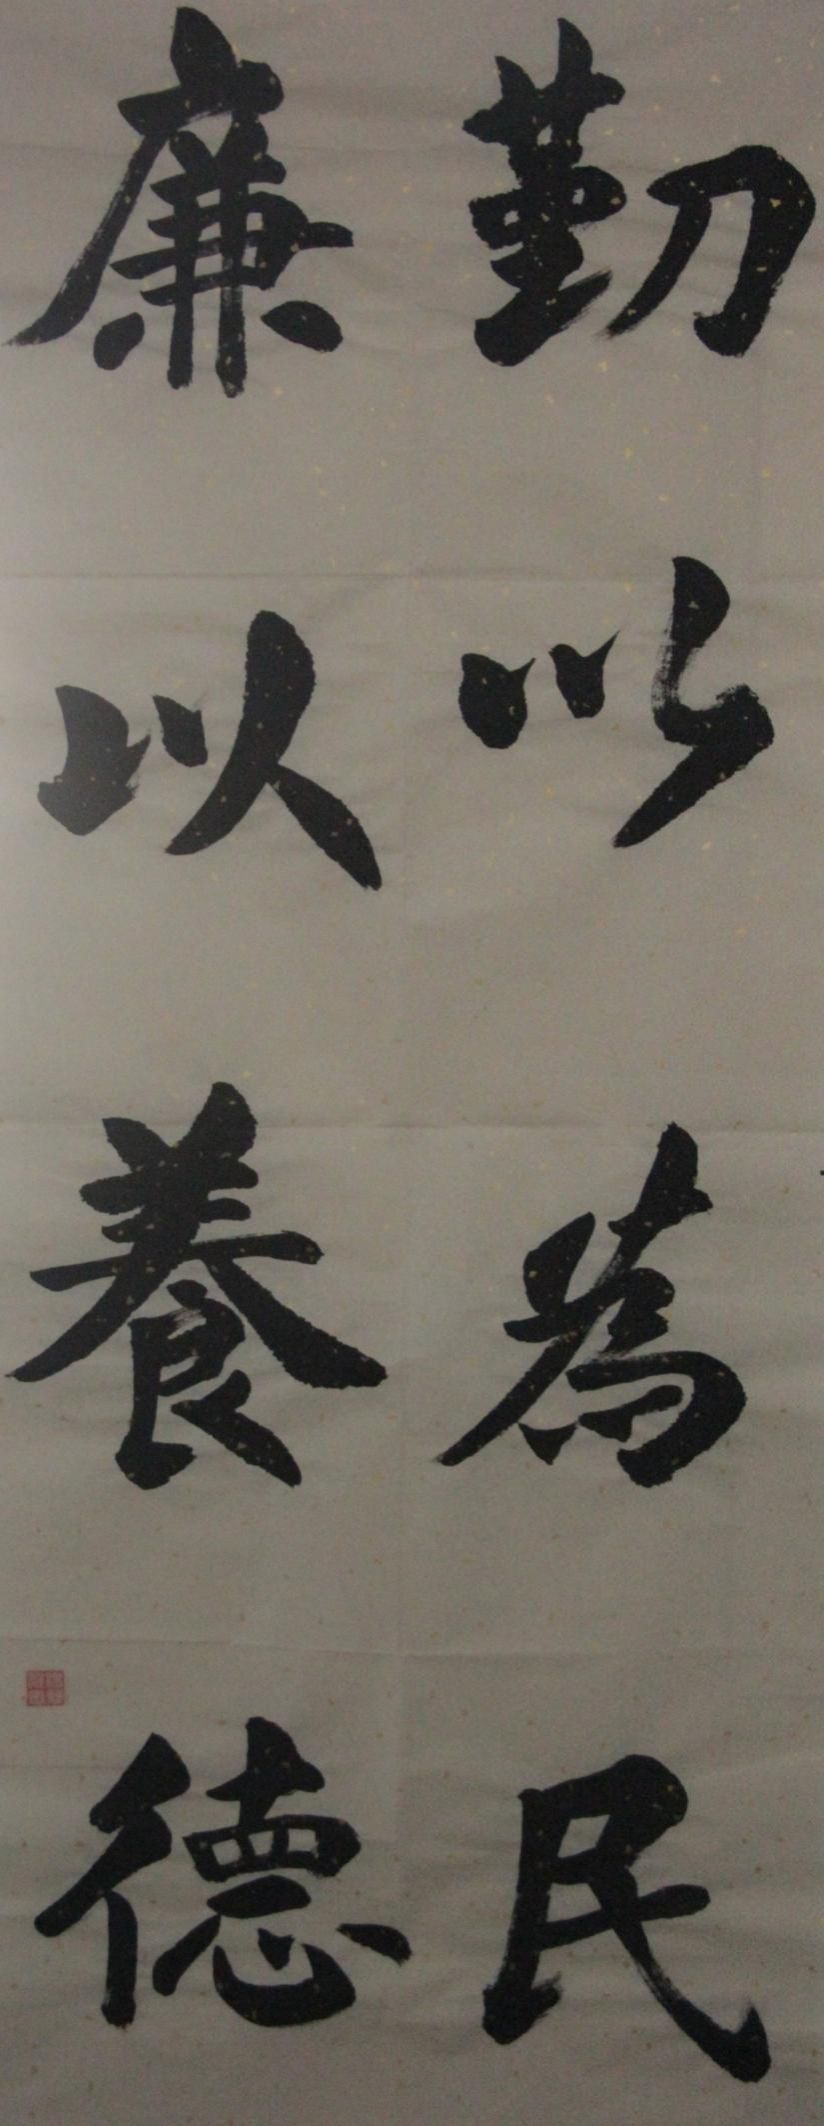 勤以為民
廉以養德